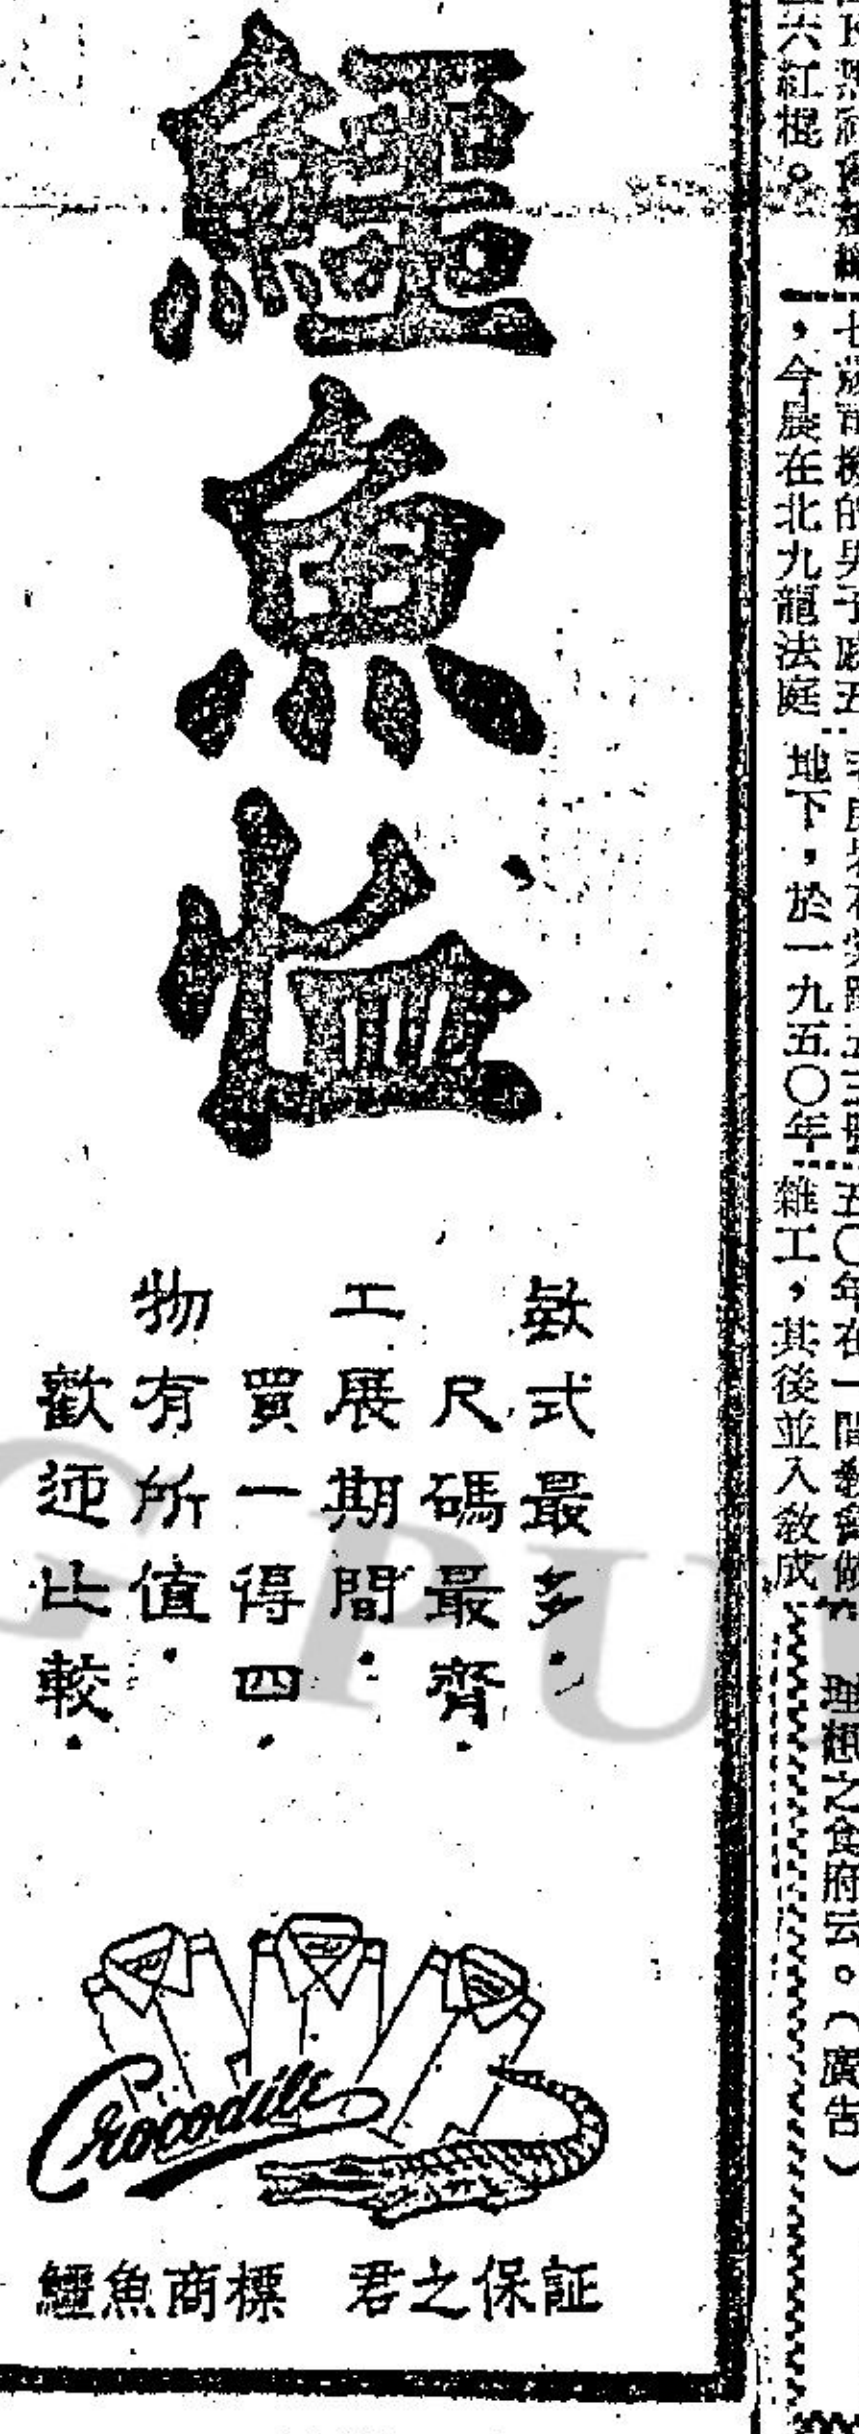 鱷魚恤
款式最多.
尺碼最齊.
工展期間.
買一得四.
物有所值.
歡迎比較.
Crocodile
鱷魚商標 君之保証
六紅棍。
，今晨在北九龍法庭
地下，於一九五〇年
雜工，其後並入教成
理想之食府云。（廣告）
PU